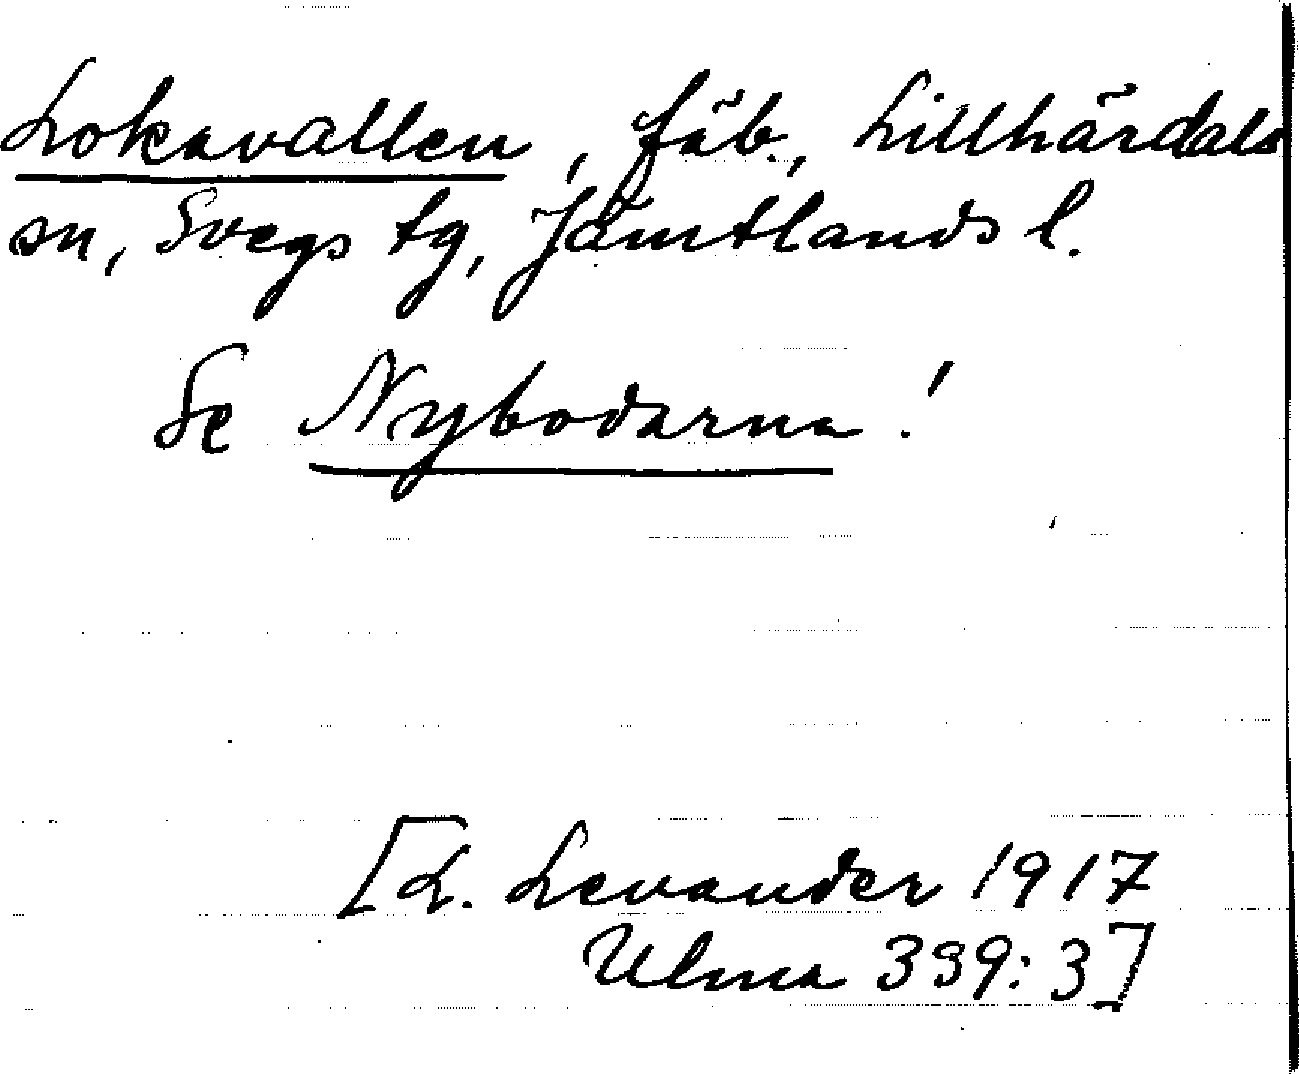 Lokavallen, fäb., Lillhärdals
sn, Svegs tg, Jämtlands l.
Se Nybodarna!
[L. Levander 1917
Ulma 339:3]